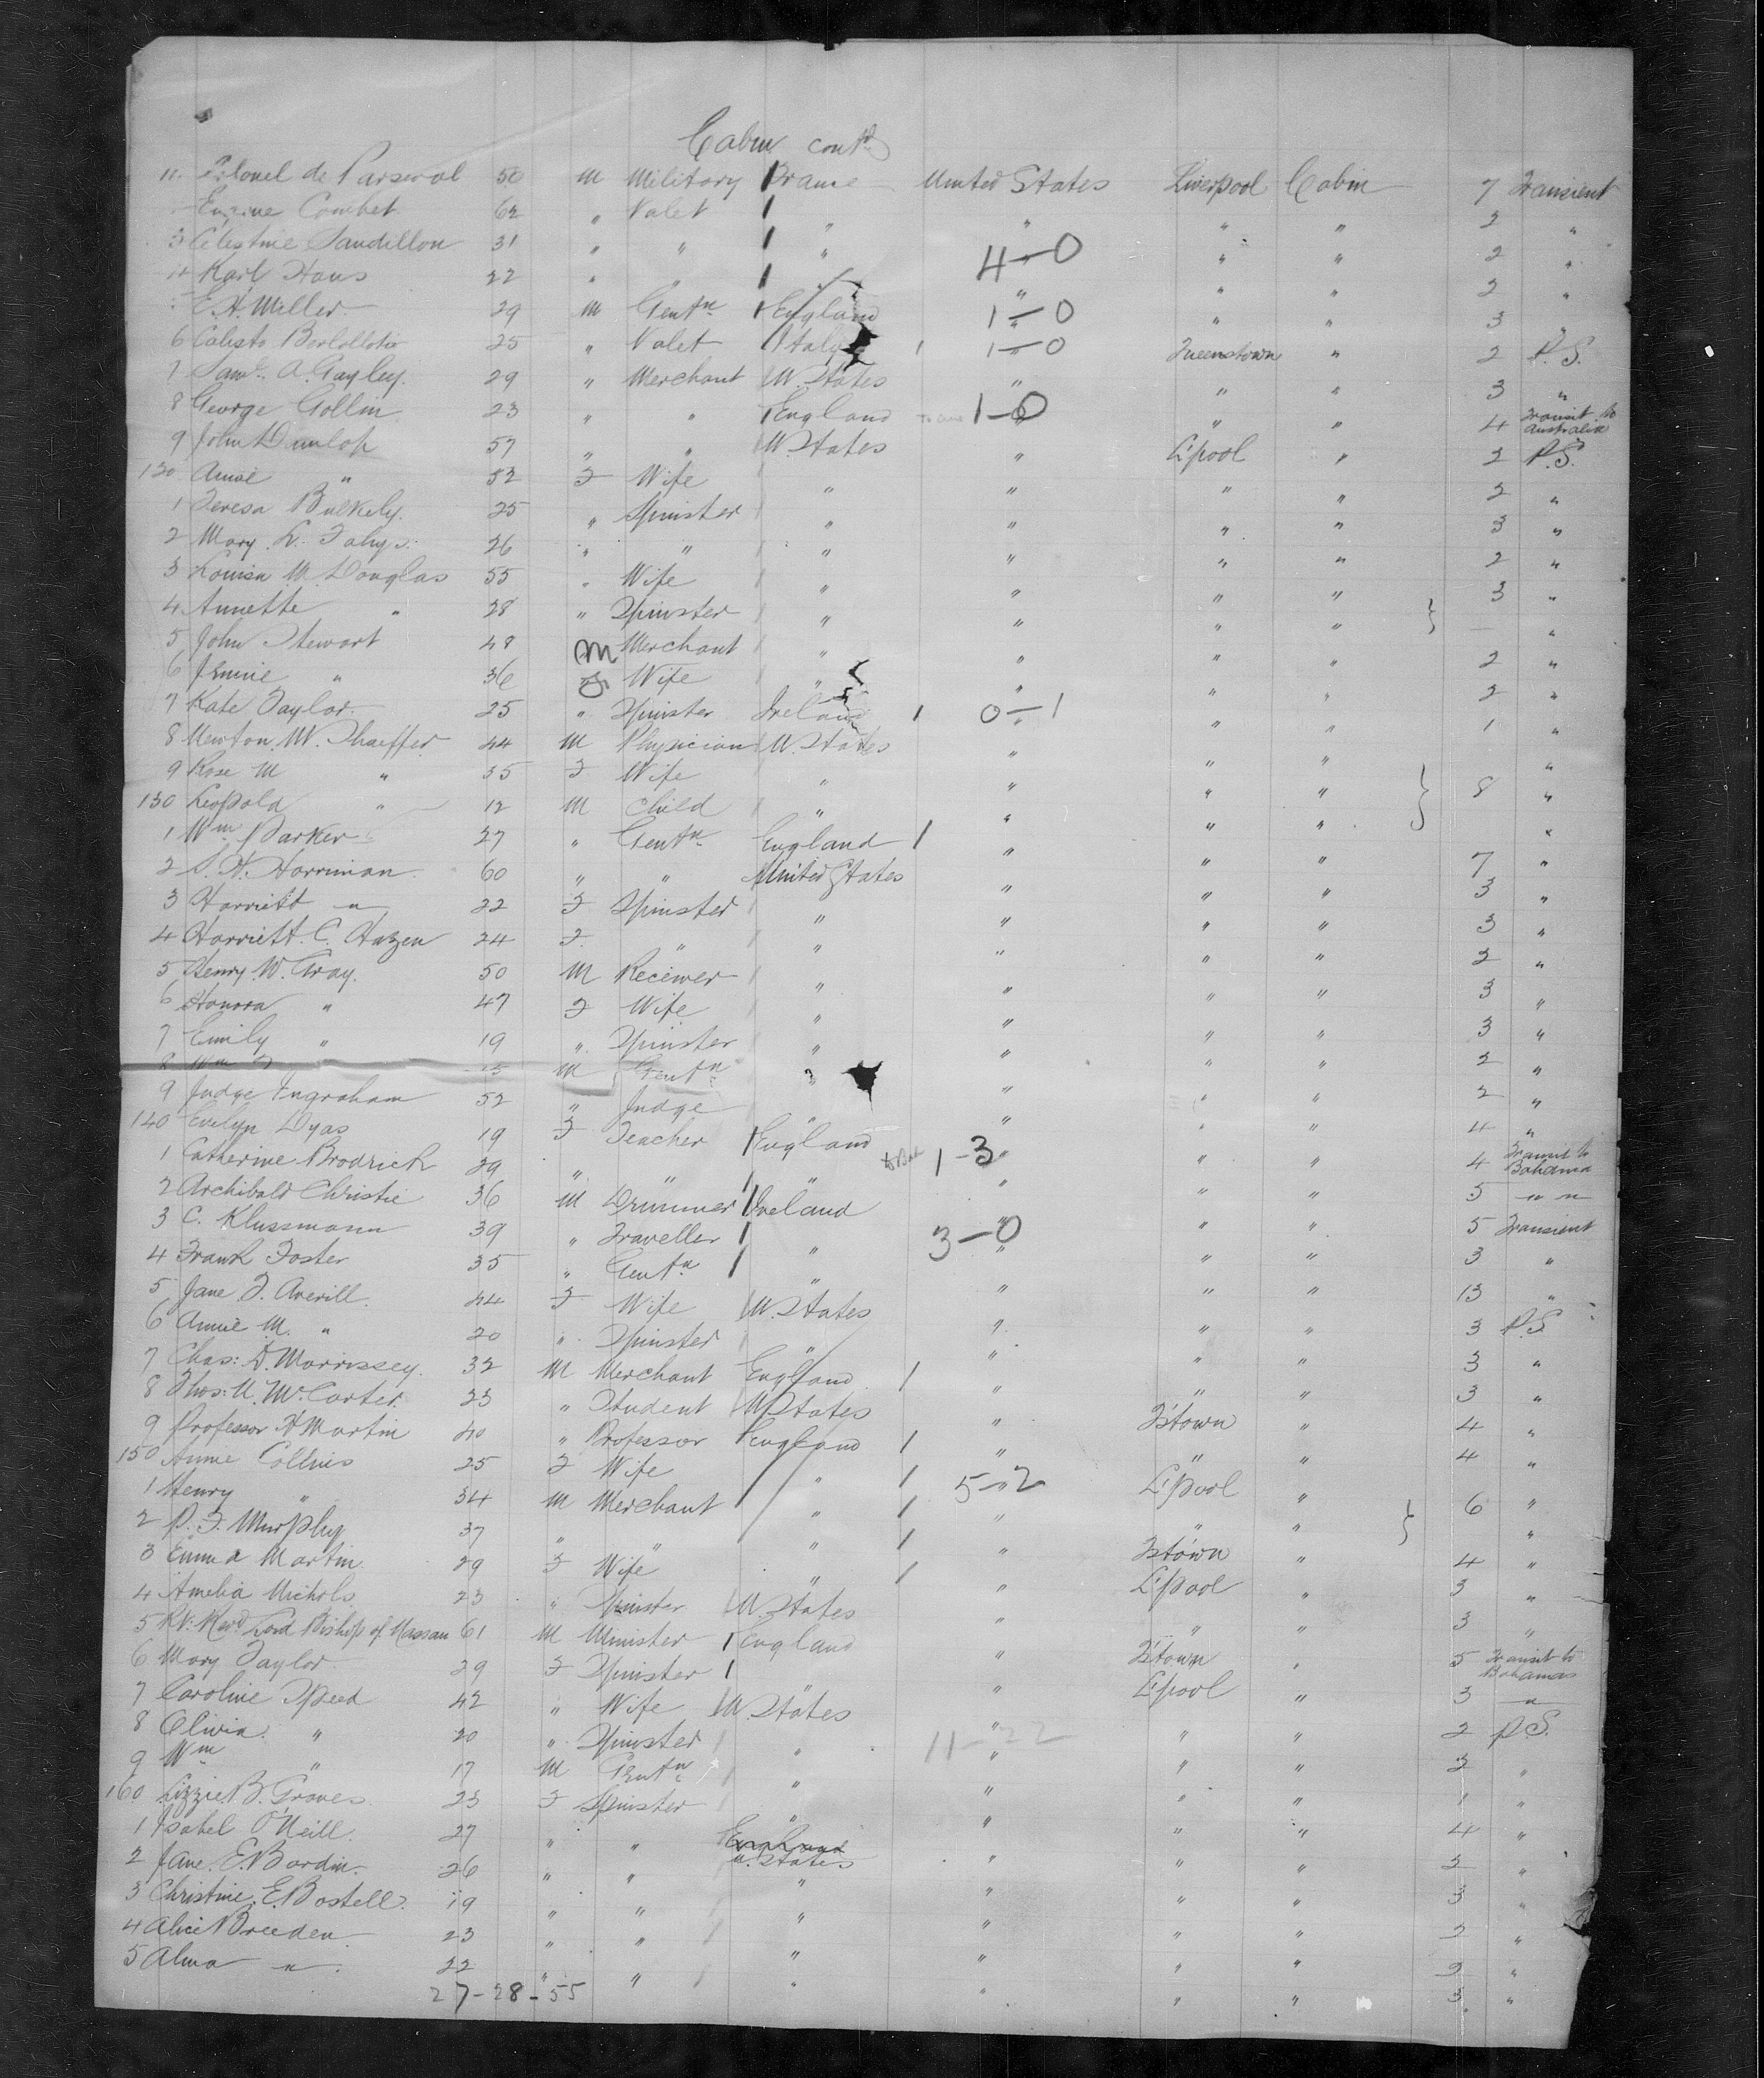 Cabin cont'd
11. Colonel de Parseval 50 M Military France United States Liverpool Cabin 7 Transient
Eugine Combet 62 " Valet " " " " 2 "
3 Celestine Sandillon 31 " " " " " " 2 "
4-0
4 Karl Hans 22 " " " " " 2 "
E. H. Miller 29 M Gentn England 1-0 " " 3
6 Calisto Bertollotis 25 " Valet Italy 1 1-0 Queenstown " 2 P.S.
7 Saml. A. Gayley 29 " Merchant U. States " " " 3 "
8 George Gollin 23 " " England 1-0 " " 4 Transit to Australia
9 John Dunlop 57 " " U. States " L'pool " 2 P.S.
120 Annie " 52 F Wife " " " " 2 "
1 Teresa Bulkely 25 " Spinster " " " " 3 "
2 Mary L. Fahys 26 " " " " " " 2 "
3 Louisa M Douglas 55 " Wife " " " " 3 "
4 Annette " 28 " Spinster " " " " "
5 John Stewart 48 M Merchant " " " " 2 "
6 Jennie " 36 F Wife " " " " 2 "
7 Kate Taylor 25 " Spinster Ireland 1 0-1 " " 1 "
8 Newton M. Shaeffer 44 M Physician U. States " " " "
9 Rose M " 35 F Wife " " " " 8 "
130 Leopold " 12 M Child " " " " "
1 Wm Parker 27 " Gentn England 1 " " " 7 "
2 S. H. Harriman 60 " " United States " " " 3 "
3 Harriett " 22 F Spinster " " " " 3 "
4 Harriett C. Hazen 24 F " " " " " 2 "
5 Henry W. Gray 50 M Receiver " " " " 3 "
6 Honora " 47 F Wife " " " " 3 "
7 Emily " 19 " Spinster " " " " 2 "
8 Wm M Gentn " " " " 2 "
9 Judge Ingraham 52 " Judge " " " " 4 "
140 Evelyn Dyas 19 F Teacher England 1-3 " " 4 Transit to Bahama
1 Catherine Brodrick 29 " " " " " " 5 " "
2 Archibald Christie 36 M Drummer Ireland " " " 5 Transient
3 C. Klussmann 39 " Traveller " 3-0 " " 3 "
4 Frank Foster 35 " Gentn " " " " 13 "
5 Jane F. Averill 44 F Wife U. States " " " 3 P.S.
6 Annie M. " 20 " Spinster " " " " 3 "
7 Chas: D. Morrissey 32 M Merchant England 1 " " " 3 "
8 Thos: U. McCarter 23 " Student U States " Q'town " 4 "
9 Professor H Martin 40 " Professor England 1 " " " 4 "
150 Annie Collins 25 F Wife " 1 5-2 L'pool " 6 "
1 Henry " 34 M Merchant " 1 " " " "
2 P. F. Murphy 37 " " " 1 " Q'town " 4 "
3 Emma Martin 29 F Wife " 1 " L'pool " 3 "
4 Amelia Nichols 23 " Spinster U. States " " " 3 "
5 Rt: Revd Lord Bishop of Nassau 61 M Minister England " Q'town " 5 Transit to Bahamas
6 Mary Taylor 29 F Spinster " L'pool " 3 "
7 Caroline Speed 42 " Wife U. States " " " 2 P.S.
8 Olivia " 20 " Spinster " 11-22 " " 2 "
9 Wm " 17 M Gentn " " " " 1 "
160 Lizzie B. Graves 23 F Spinster " " " " 4 "
1 Isabel O'Neill 27 " " England U. States " " " 2 "
2 Jane E. Bordin 26 " " " " " " 3 "
3 Christine E. Bostell 19 " " " " " " 2 "
4 Alice Breeden 23 " " " " " " 2 "
5 Alma " 22 " " " " " " 3 "
27-28-55